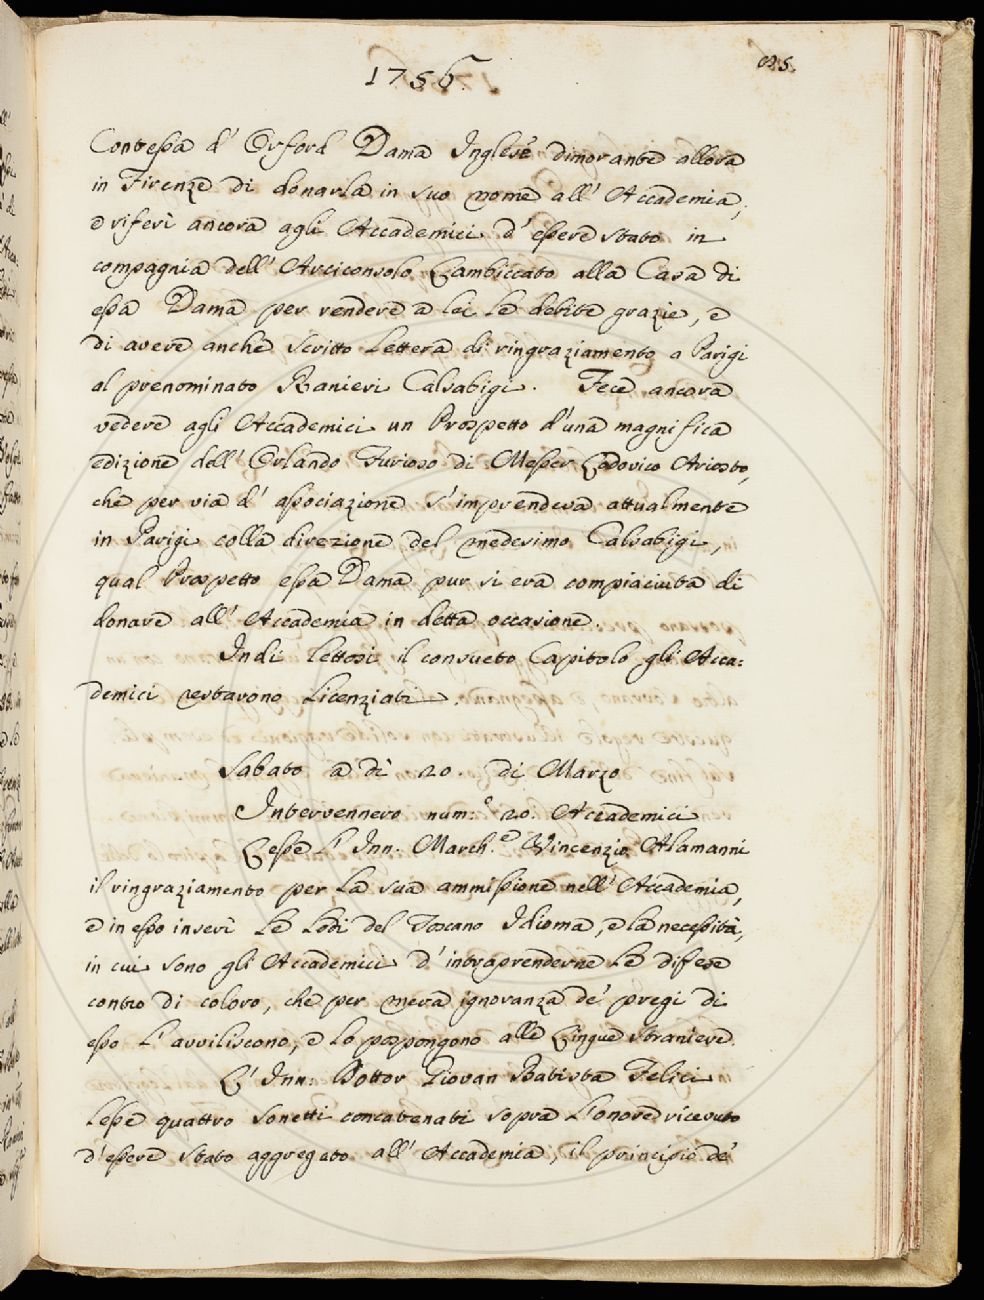 1756
95.
Contessa d' Orford Dama Inglese dimorante allora
in Firenze di donarla in suo nome all' Accademia,
e riferì ancora agli Accademici d' essere stato in
compagnia dell' Arciconsolo Lambiccato alla Casa di
essa Dama per rendere a lei le debite grazie, e
di avere anche scritto Lettera di ringraziamento a Parigi
al prenominato Ranieri Calsabigi. Fece ancora
vedere agli Accademici un Prospetto d'una magnifica
edizione dell' Orlando Furioso di Messer Lodovico Ariosto,
che per via d' associazione s'imprendeva attualmente
in Parigi colla direzione del medesimo Calsabigi,
qual Prospetto essa Dama pur si era compiaciuta di
donare all' Accademia in detta occasione.
Indi lettosi il consueto Capitolo gli Acca:
demici restarono licenziati.
Sabato a dì 20. di Marzo
Intervennero num.º 20. Accademici
Lesse l' Inn. March.e Vincenzio Alamanni
il ringraziamento per la sua ammissione nell' Accademia,
e in esso inserì le lodi del Toscano Idioma, e la necessità,
in cui sono gli Accademici d' intraprenderne le difese
contro di coloro, che per mera ignoranza de' pregi di
esso l' avviliscono, e lo pospongono alle Lingue straniere.
L' Inn: Dottor Giovan Batista Felici
lesse quattro Sonetti concatenati sopra l'onore ricevuto
d'essere stato aggregato all' Accademia, il principio de'